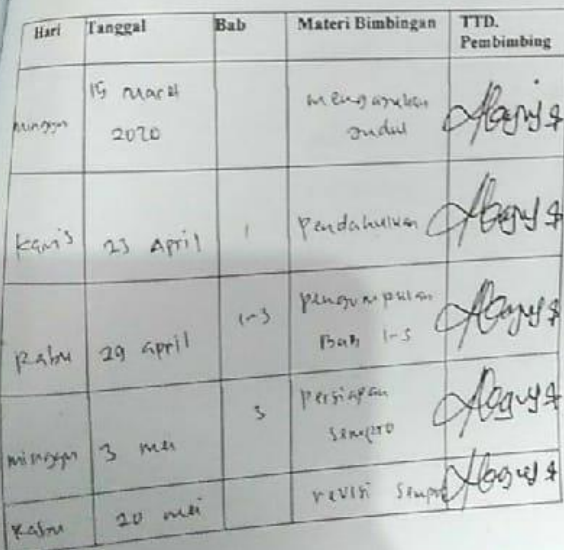 Hari Tanggal Bab Materi Bimbingan TTD. Pembimbing
minggu 15 maret 2020 mengajukan judul
kamis 23 April 1 Pendahuluan
Rabu 29 april 1-3 pengumpulan Bab 1-3
minggu 3 mei 3 persiapan sempro
Rabu 20 mei revisi sempro